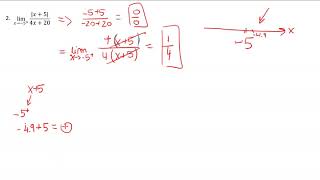 2. lim x→-5⁺ |x + 5| / 4x + 20 => -5+5 / -20+20 = 0/0
= lim x→-5⁺ +(x+5) / 4(x+5) = 1/4
-5 -4.9 x
x+5
-5⁺
-4.9+5 = +